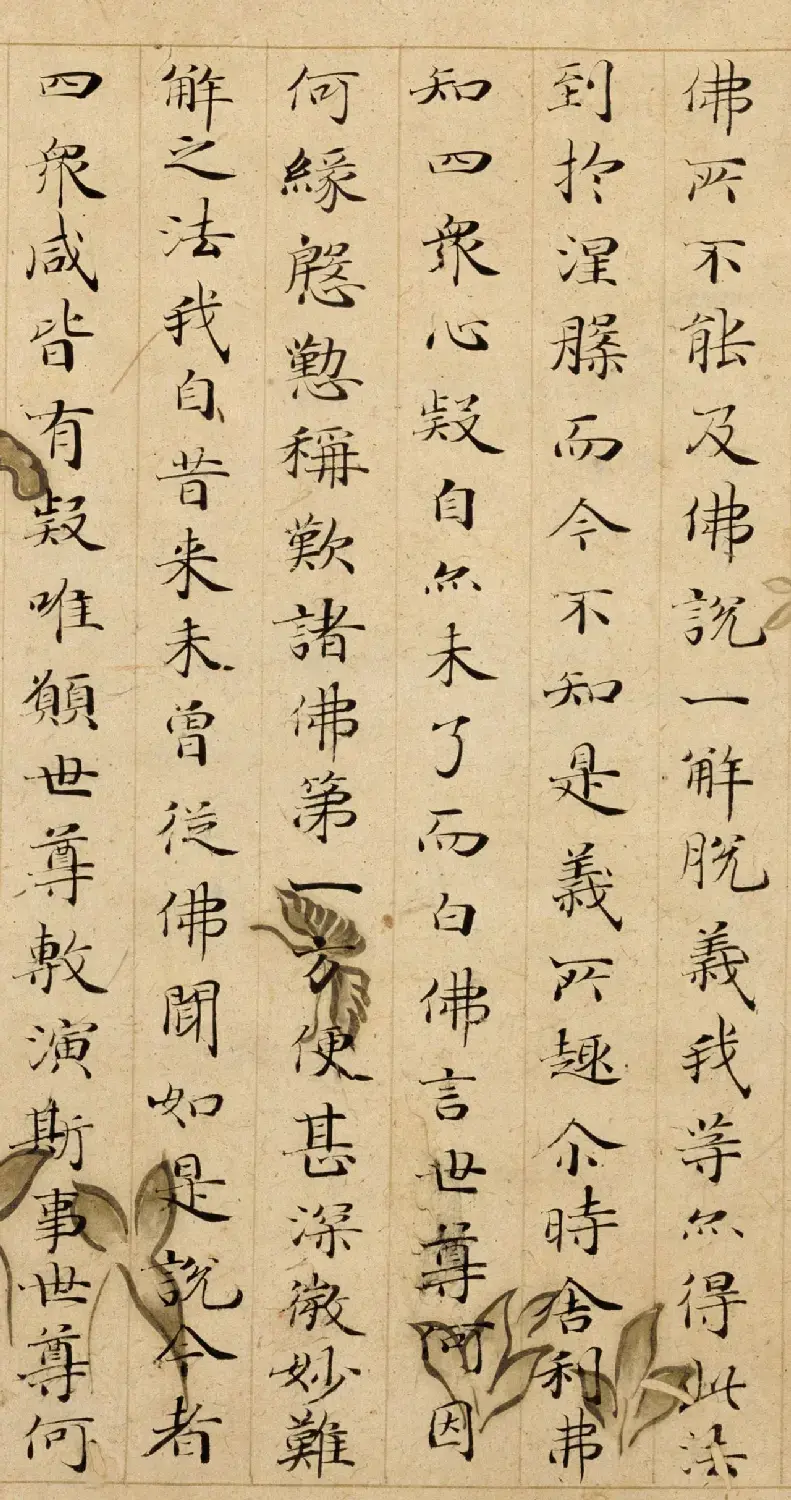 佛所不能及佛說一解脫義我等亦得此法
到於涅槃而今不知是義所趣尒時舍利弗
知四衆心疑自亦未了而白佛言世尊何因
何緣慇懃稱歎諸佛第一方便甚深微妙難
解之法我自昔来未曾從佛聞如是說今者
四衆咸皆有疑唯願世尊敷演斯事世尊何